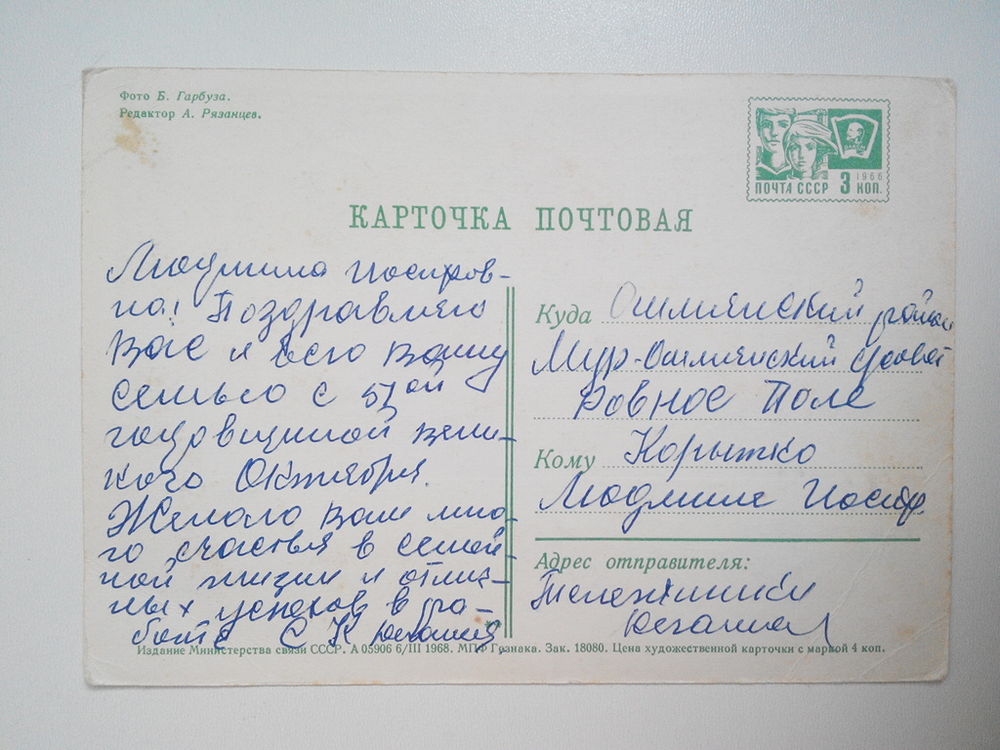 Фото Б. Гарбуза.
Редактор А. Рязанцев.
1966
ПОЧТА СССР 3 КОП.
КАРТОЧКА ПОЧТОВАЯ
Людмила Иосифов-
на! Поздравляю
Вас и всю Вашу
семью с 51ой
годовщиной вели-
кого Октября.
Желаю Вам мно-
го счастья в семей-
ной жизни и отлич-
ных успехов в ра-
боте С К
Куда Ошмянский район
Мур-Ошмянский
Ровное Поле
Кому Корытко
Людмиле Иосиф.
Адрес отправителя:
Издание Министерства связи СССР. А 05906 6/III 1968. МПФ Гознака. Зак. 18080. Цена художественной карточки с маркой 4 коп.